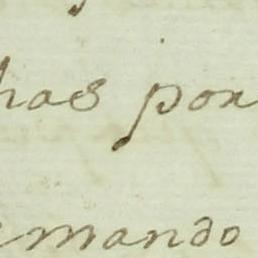 has por
mando